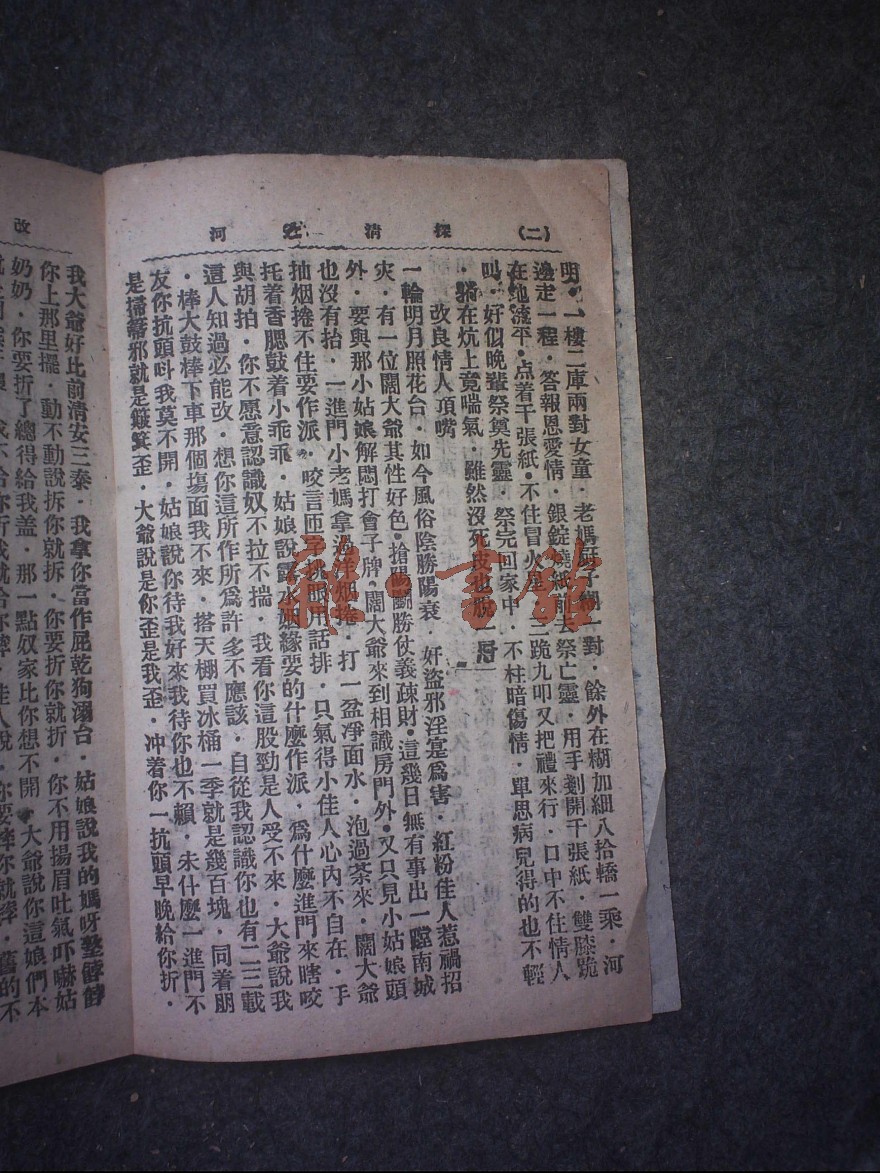 (二) 探清水河
明・一樓二庫兩對女童・老媽厨子糊一對・餘外在糊加細八抬轎一乘・河
邊走一程・答報恩愛情・銀錠燒紙前去祭亡靈・用手剝開千張紙・雙膝跪
在地流平・点着千張紙・不住冒火星・三跪九叩又把禮來行・口中不住情人
叫・好似晚輩祭奠先靈・祭完回家中・不枉暗傷情・單思病兒得的也不輕
・躺在炕上竟喘氣・雖然没死皮也脫一
改良情人頂嘴
一輪明月照花台・如今風俗陰勝陽衰・奸盜邪淫寔為害・紅粉佳人惹禍招
灾・有一位闊大爺其性好色・搶陽鬭勝仗義疎財・這幾日無有事出一蹚南城
外・要與那小姑娘解悶打會子牌・闊大爺來到相識房門外・又只見小姑娘頭
也沒有抬・一進門小老媽拿過洋烟捲・打一盆凈面水・泡過茶來・闊大爺
抽烟捲不住耍作派・咬言咂字挑眼用話排・只氣得小佳人心內不自在・手
托着香腮鼓着小乖乖・姑娘說露水姻緣要的什麼作派・為什麼進門來瞎咬
與胡拍・你不愿意認識奴不拉不揣・我看你這股勁是人受不來・大爺說我
這人知過必能改・想你這所作所為許多不應該・自從我認識你也有二三載
・棒大鼓棒下車那個塲面我不來・搭天棚買冰桶一季就是幾百塊・同着朋
友你抗頭呌我莫不開・姑娘說你待我好來我待你也不賴・未什麼一進門不
是掃箒邪就是簸箕歪・大爺說是你歪是我歪・冲着你一抗頭早晚給你折・
改
我大爺好比前清安三泰・我拿你當作屁乾狗溺台・姑娘說我的媽呀整餑餑
你上那里擺・動不動說拆你就拆・你要折你就折・你不用揚眉吐氣吓嚇姑
奶奶・你要折了總得給我盖・那一點奴家比你想不開・大爺說你這娘們本